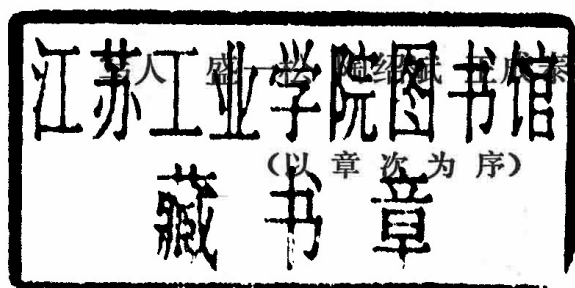 江苏工业学院图书馆
（以章次为序）
藏书章